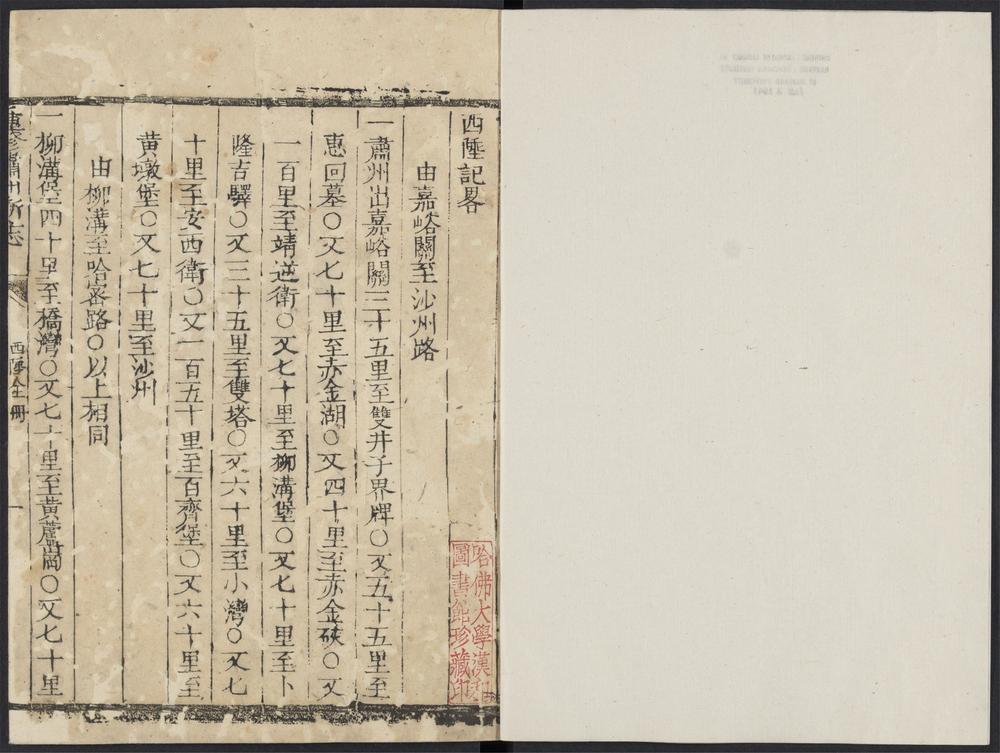 西陲記畧
由嘉峪關至沙州路
一肅州出嘉峪關三十五里至雙井子界牌〇又五十五里至
惠回墓〇又七十里至赤金湖〇又四十里至赤金硤〇又
一百里至靖逆衛〇又七十里至柳溝堡〇又七十里至卜
隆吉驛〇又三十五里至雙塔〇又六十里至小灣〇又七
十里至安西衛〇又一百五十里至百齊堡〇又六十里至
黃墩堡〇又七十里至沙州
由柳溝至哈密路〇以上相同
一柳溝堡四十里至橋灣〇又七十里至黃蘆崗〇又七十里
重修肅州新志
西陲全册
一
哈佛大學漢和
圖書館珍藏印